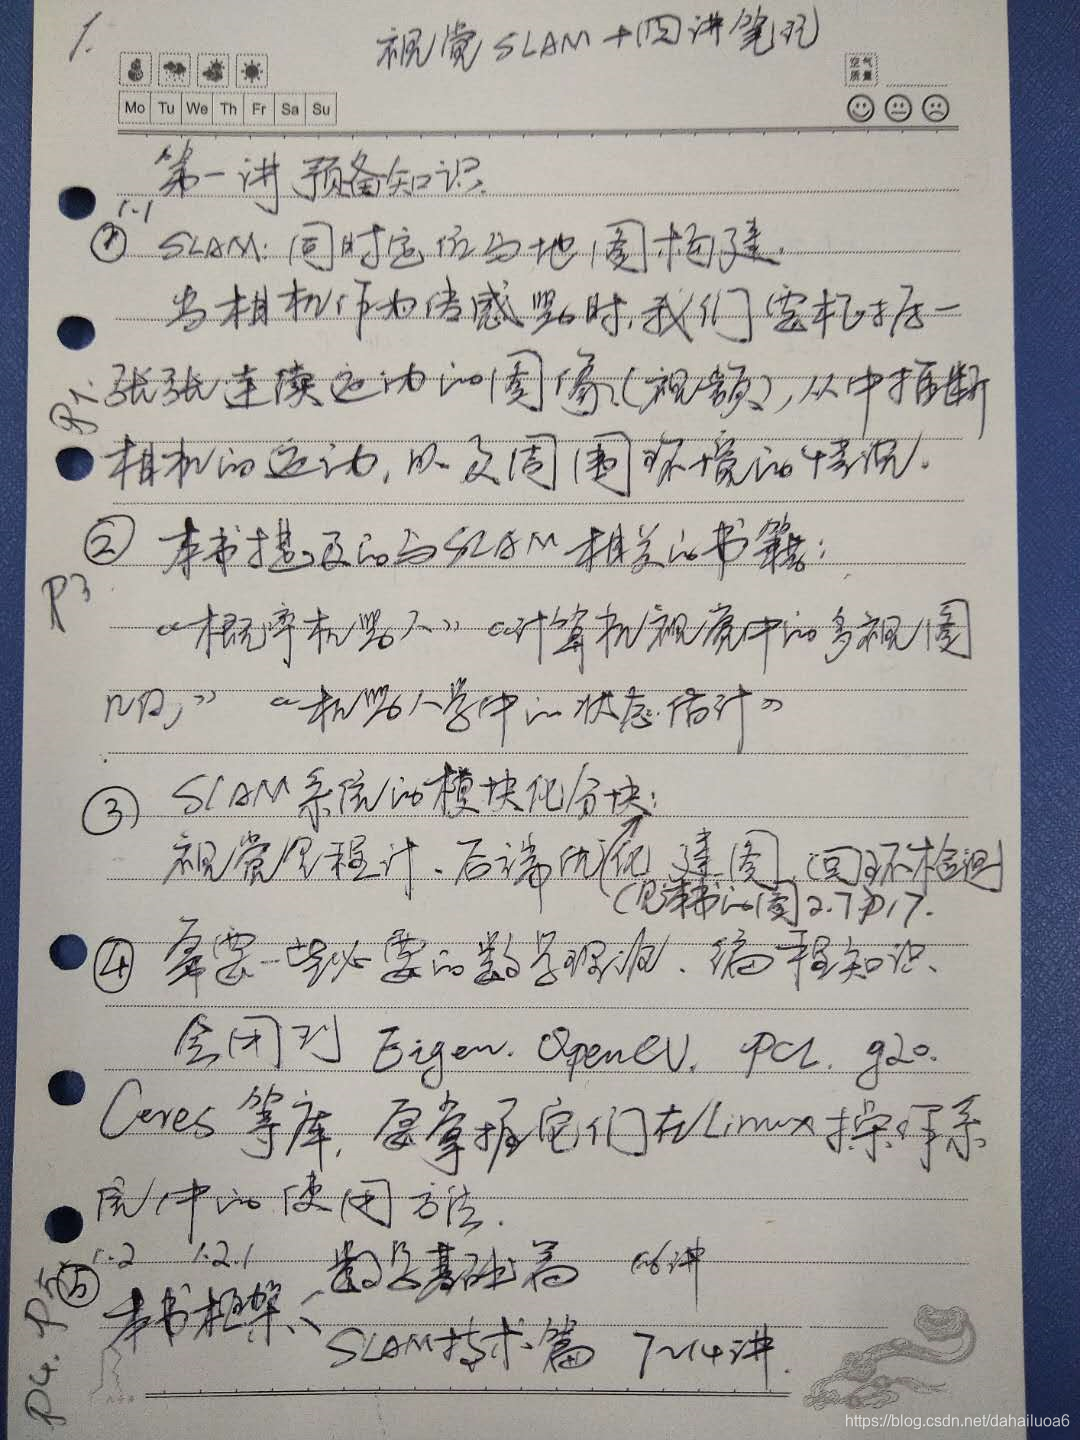 1.
视觉SLAM十四讲笔记
空气
质量
Mo Tu We Th Fr Sa Su
第一讲 预备知识.
1.1
① SLAM: 同时定位与地图构建.
当相机作为传感器时,我们要根据一
P1.
张张连续运动的图像(视频),从中推断
相机的运动,以及周围环境的情况.
② 本书提及的与SLAM相关的书籍:
P3
《概率机器人》《计算机视觉中的多视图
几何》 《机器人学中的状态估计》
③ SLAM系统的模块化分块:
视觉里程计、后端优化、建图、回环检测
(见本书的图2.7 P17.
④ 需要一些必要的数学理论、编程知识、
会用到 Eigen. OpenCV. PCL. g2o.
Ceres等库, 要掌握它们在Linux操作系
统中的使用方法.
1.2 1.2.1 数学基础篇 ~6讲
⑤ 本书框架
SLAM技术篇 7~14讲.
P4. P5
https://blog.csdn.net/dahailuoa6